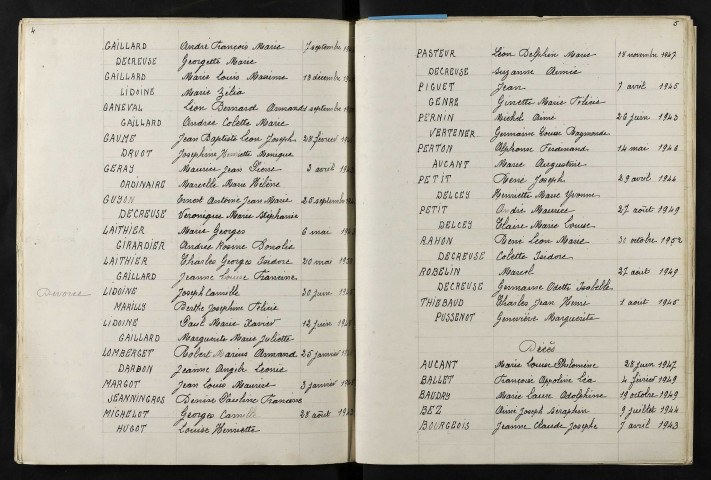 4
GAILLARD André François Marie 7 septembre
DECREUSE Georgette Marie
GAILLARD Marie Louis Maxime 13 décembre
LIDOINE Marie Zélia
GANEVAL Léon Bernard Armand septembre
GAILLARD Andrée Colette Marie
GAUME Jean Baptiste Léon Joseph 28 février
DRUOT Joséphine Henriette Monique
GERAY Maurice Jean Pierre 3 avril
ORDINAIRE Marcelle Marie Hélène
GUYON Ernest Antoine Jean Marie 25 septembre
DECREUSE Véronique Marie Stéphanie
LAITHIER Marie Georges 6 mai
GIRARDIER Andrée Rosine
LAITHIER Charles Georges Isidore 20 mai
GAILLARD Jeanne Louise Francine
Divorce LIDOINE Joseph Camille 30 juin
MARILLY Berthe Joséphine Félicie
LIDOINE Paul Marie Xavier 12 juin
GAILLARD Marguerite Marie Juliette
LOMBERGET Robert Marius Armand 25 janvier
DARBON Jeanne Angèle Léonie
MARGOT Jean Louis Maurice 3 janvier
JEANNINGROS Denise Pauline Francine
MICHELOT Georges Camille 28 août
HUGOT Louise Henriette
5
PASTEUR Léon Delphin Marie 18 novembre 1947
DECREUSE Suzanne Aimée
PIGUET Jean 7 avril 1945
GENRE Ginette Marie Félicie
PERNIN Michel Aimé 26 juin 1943
VERTENER Germaine Louise Raymonde
PERTON Alphonse Ferdinand 14 mai 1946
AUCANT Marie Augustine
PETIT René Joseph 29 avril 1944
DELCEY Henriette Marie Yvonne
PETIT André Maurice 27 août 1949
DELCEY Claire Marie Louise
RAMON René Léon Marie 20 octobre 1952
DECREUSE Colette Isidore
ROBELIN Marcel 27 août 1949
DECREUSE Germaine Odette Isabelle
THIEBAUD Charles Jean Henri 1 août 1945
PUSSENOT Geneviève Marguerite
Décès
AUCANT Marie Louise Philomène 28 juin 1947
BALLET Françoise Appoline Léa 4 février 1949
BAUDRY Marie Laure Adolphine 19 octobre 1949
BEZ Aimé Joseph Séraphin 9 juillet 1944
BOURGEOIS Jeanne Claude Josephe 7 avril 1943